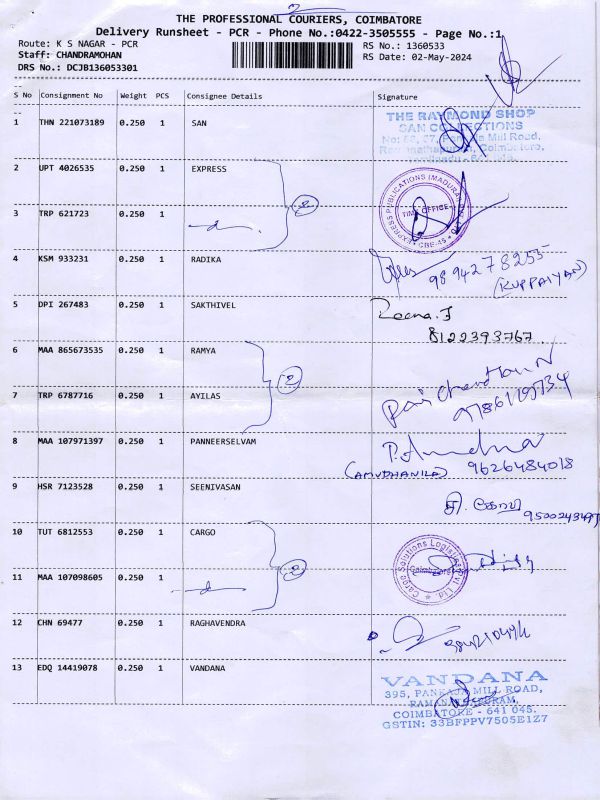 2
THE PROFESSIONAL COURIERS, COIMBATORE
Delivery Runsheet - PCR - Phone No.:0422-3505555 - Page No.:1
Route: K S NAGAR - PCR
RS No.: 1360533
Staff: CHANDRAMOHAN
RS Date: 02-May-2024
DRS No.: DCJB136053301
S No Consignment No Weight PCS Consignee Details Signature
1 THN 221073189 0.250 1 SAN
THE RAYMOND SHOP
SAN COLLECTIONS
2 UPT 4026535 0.250 1 EXPRESS
EXPRESS PUBLICATIONS (MADURAI)
TIME OFFICE
CBE-45
3 TRP 621723 0.250 1
2
4 KSM 933231 0.250 1 RADIKA
9894278255
(KUPPAIYAN)
5 DPI 267483 0.250 1 SAKTHIVEL
Reena.J
8122393767.
6 MAA 865673535 0.250 1 RAMYA
2
7 TRP 6787716 0.250 1 AYILAS
8 MAA 107971397 0.250 1 PANNEERSELVAM
(AMUDHANILA) 9626484018
9 HSR 7123528 0.250 1 SEENIVASAN
10 TUT 6812553 0.250 1 CARGO
Cargo Solutions Logistics Pvt. Ltd.
Coimbatore
11 MAA 107098605 0.250 1
2
12 CHN 69477 0.250 1 RAGHAVENDRA
13 EDQ 14419078 0.250 1 VANDANA
VANDANA
395, PANKAJA MILL ROAD,
RAMANATHAPURAM,
COIMBATORE - 641 045.
GSTIN: 33BFPPV7505E1Z7